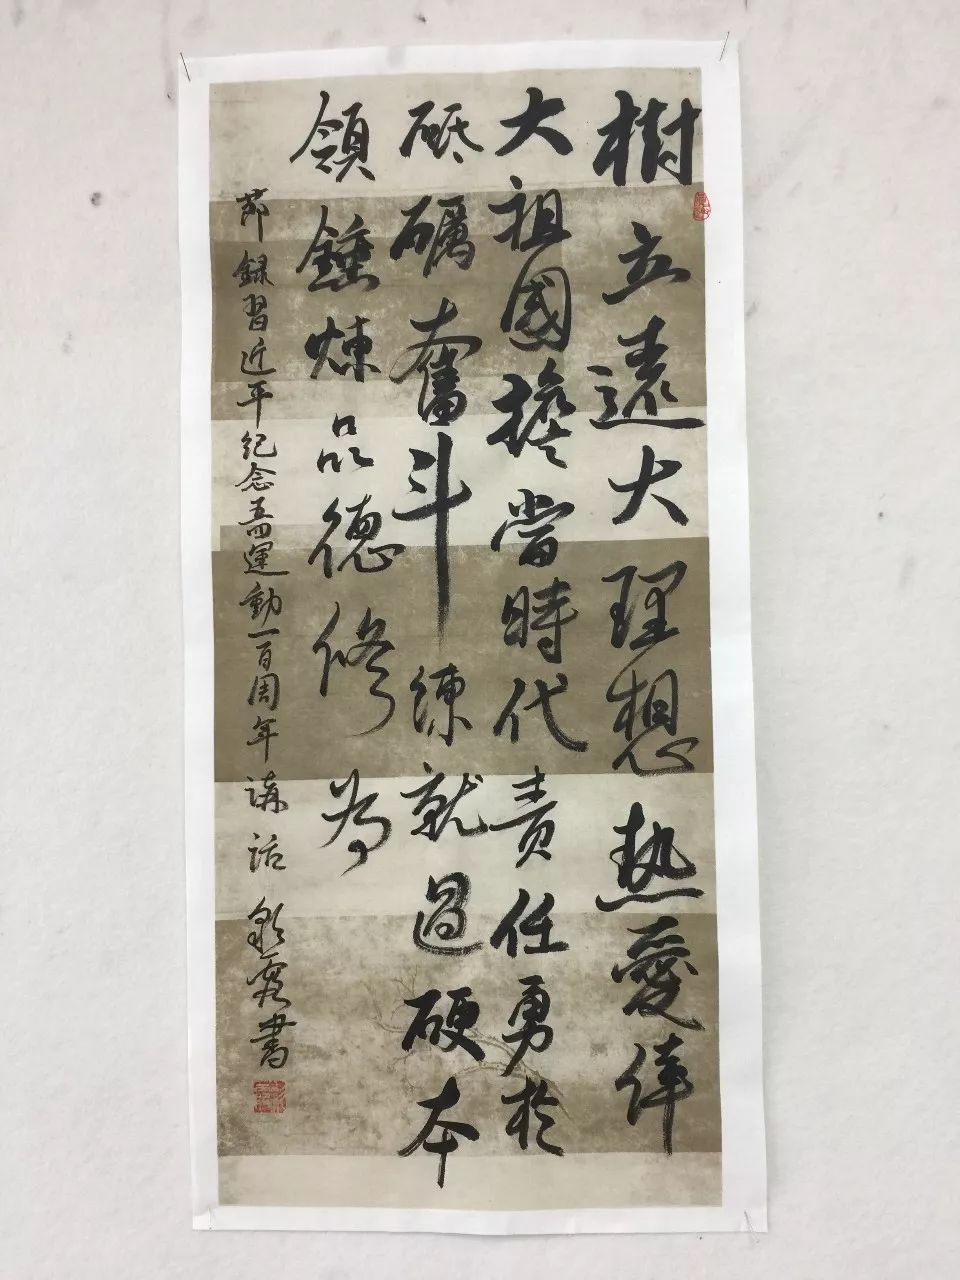 樹立遠大理想热愛偉
大祖國擔當時代責任勇於
砥礪奮斗練就過硬本
領錘煉品德修为
節録習近平紀念五四運動一百周年講話 書